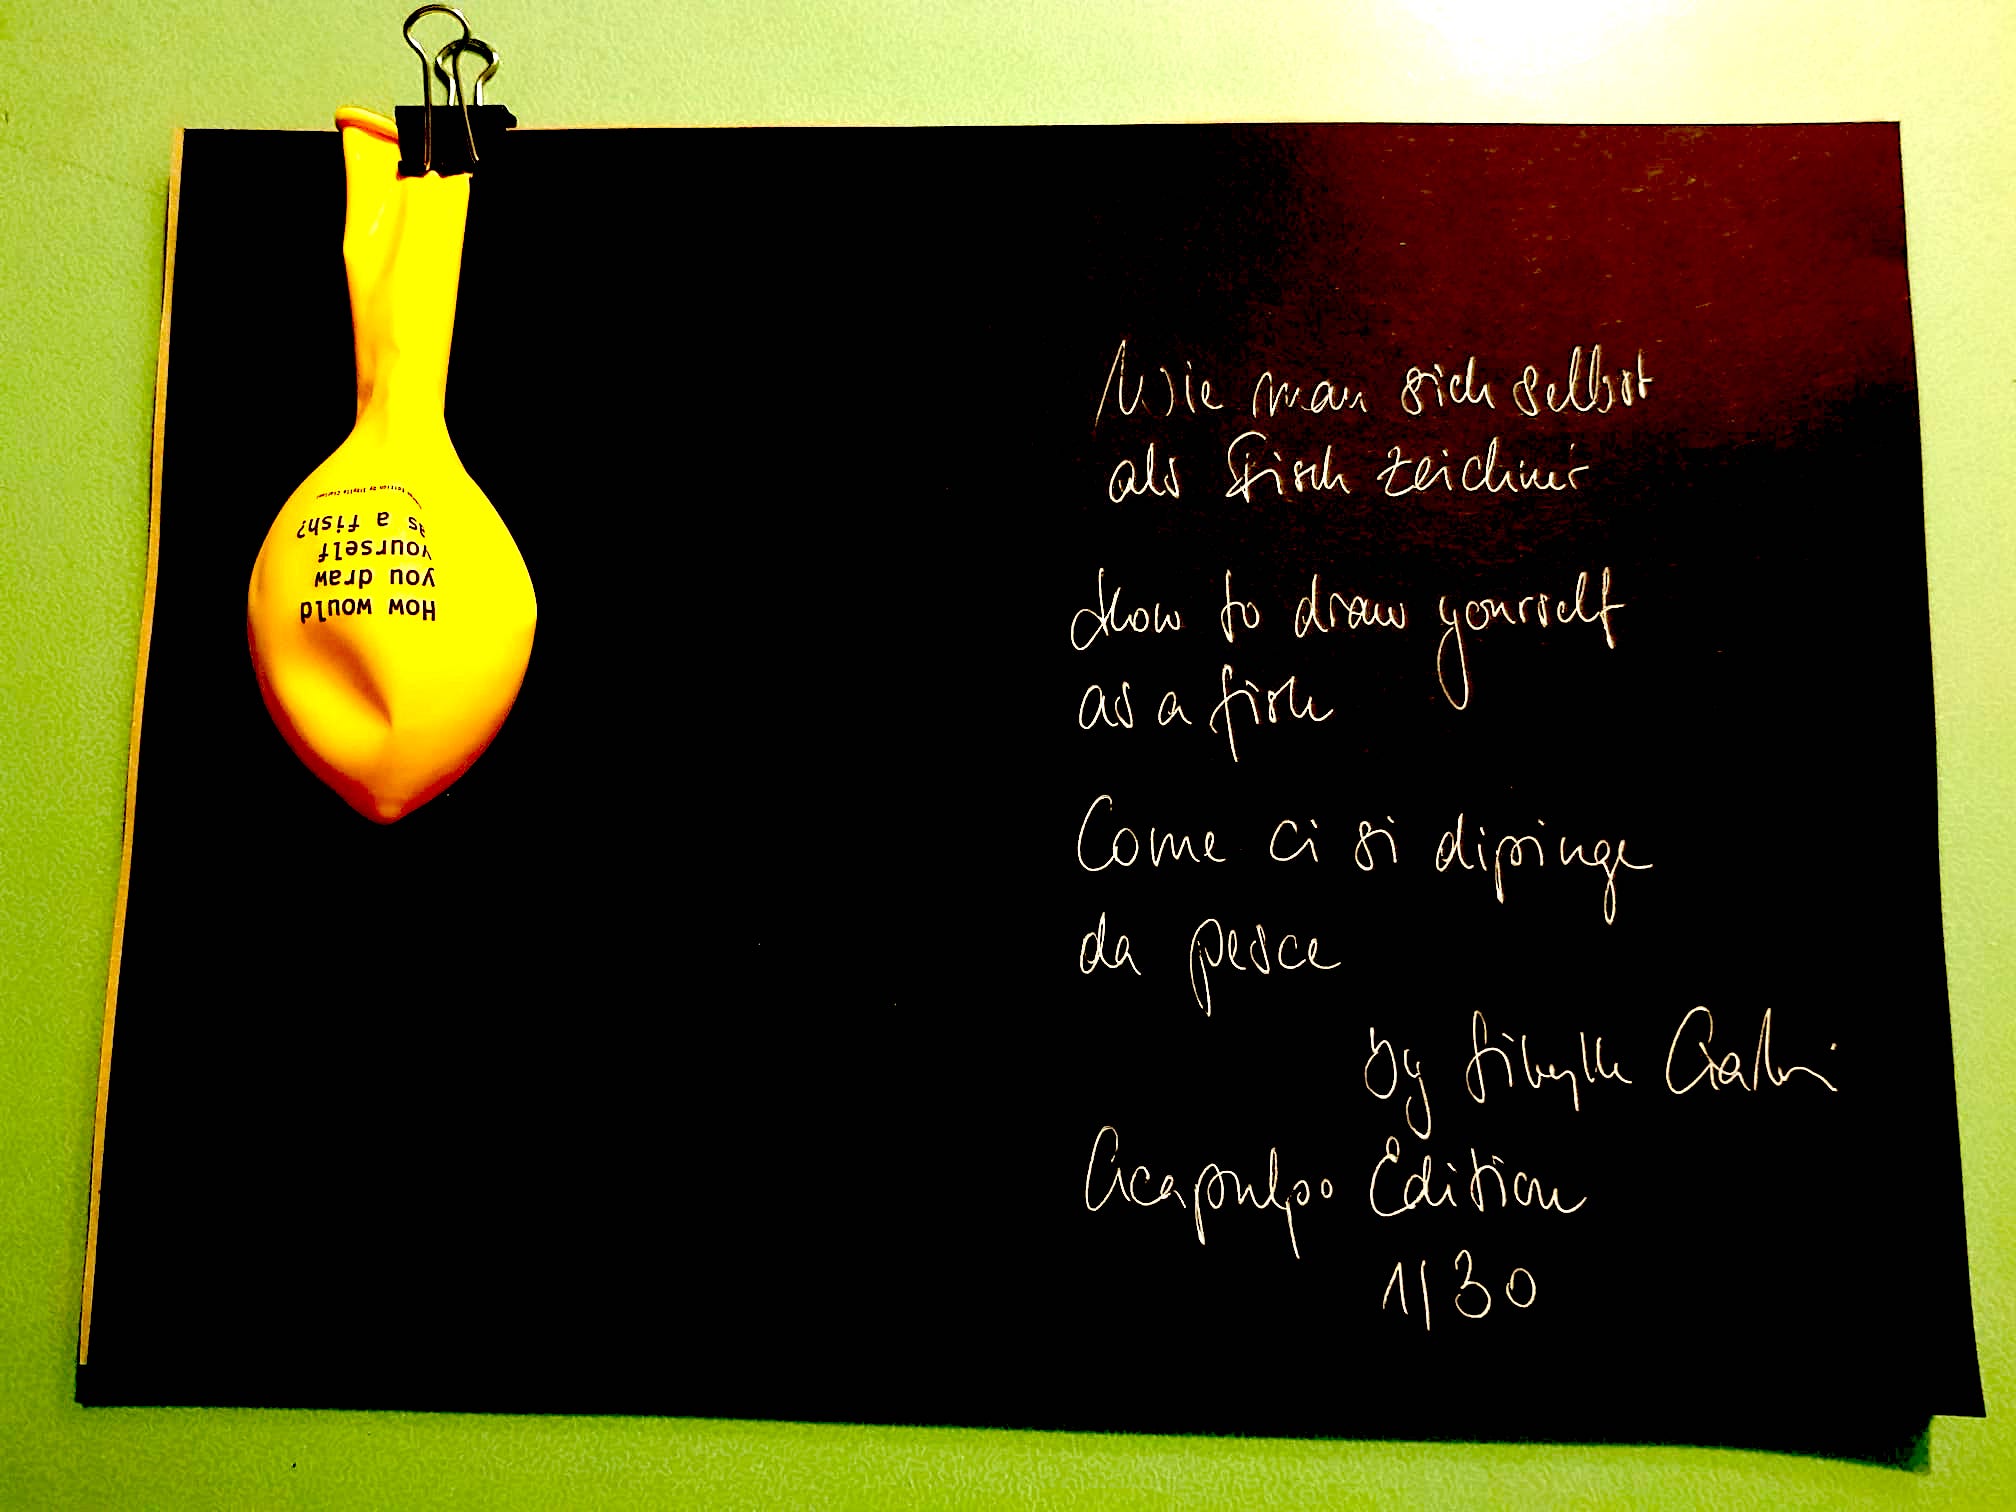 How would
you draw
yourself
as a fish?
Edition by Sibylle Ciarloni
Wie man sich selbst
als Fisch zeichnet
How to draw yourself
as a fish
Come ci si dipinge
da pesce
by Sibylle
Acapulpo Edition
1/30